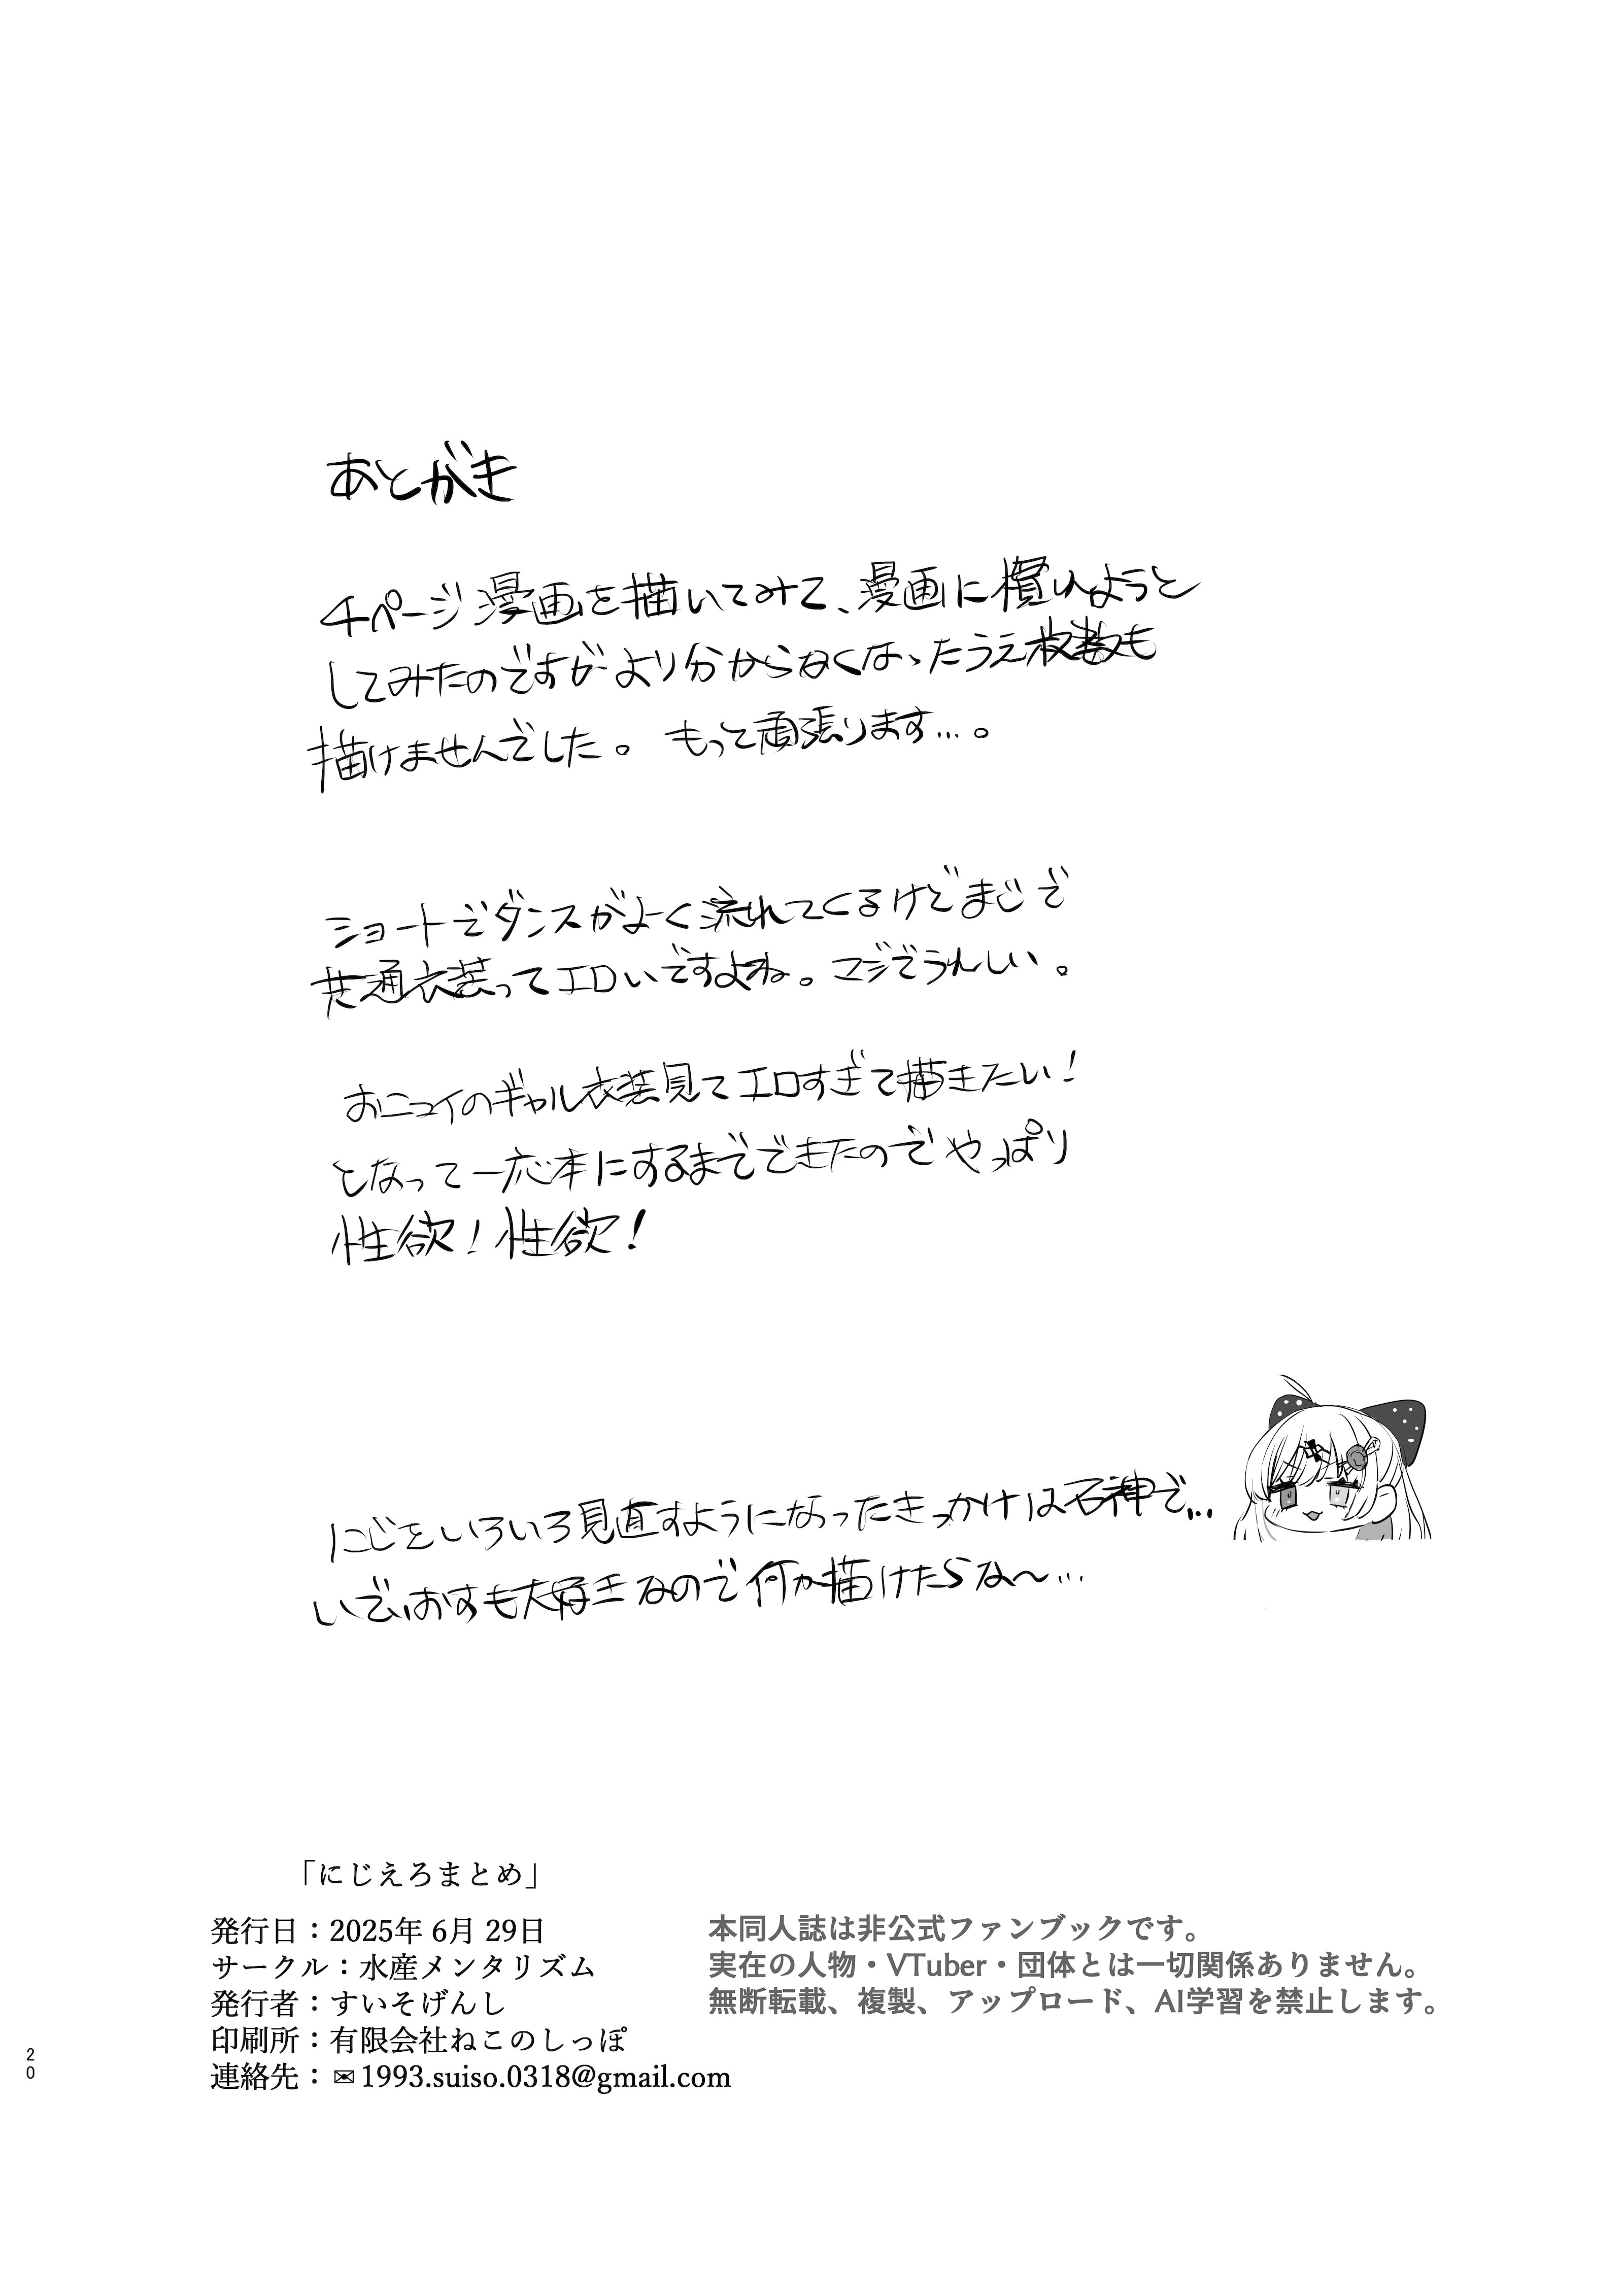 あとがき
4ページ漫画を描いてみて、漫画に慣れようと
してみたのですがより分からなくなったうえ枚数も
描けませんでした。もって頑張ります…。
ショートでダンスがよーく流れてくるけどまじで
共通衣装ってエロいですよね。マジでうれしい。
おニュイのギャル衣装見てエロすぎて描きたい!
となって一応本にするまでできたのでやっぱり
性欲!性欲!
にじをいろいろ見直すようになったきっかけは石神で…
いでぃおすも大好きなので何か描けたらな〜…
「にじえろまとめ」
発行日:2025年6月29日
サークル:水産メンタリズム
発行者:すいそげんし
印刷所:有限会社ねこのしっぽ
連絡先:✉1993.suiso.0318@gmail.com
本同人誌は非公式ファンブックです。
実在の人物・VTuber・団体とは一切関係ありません。
無断転載、複製、アップロード、AI学習を禁止します。
20